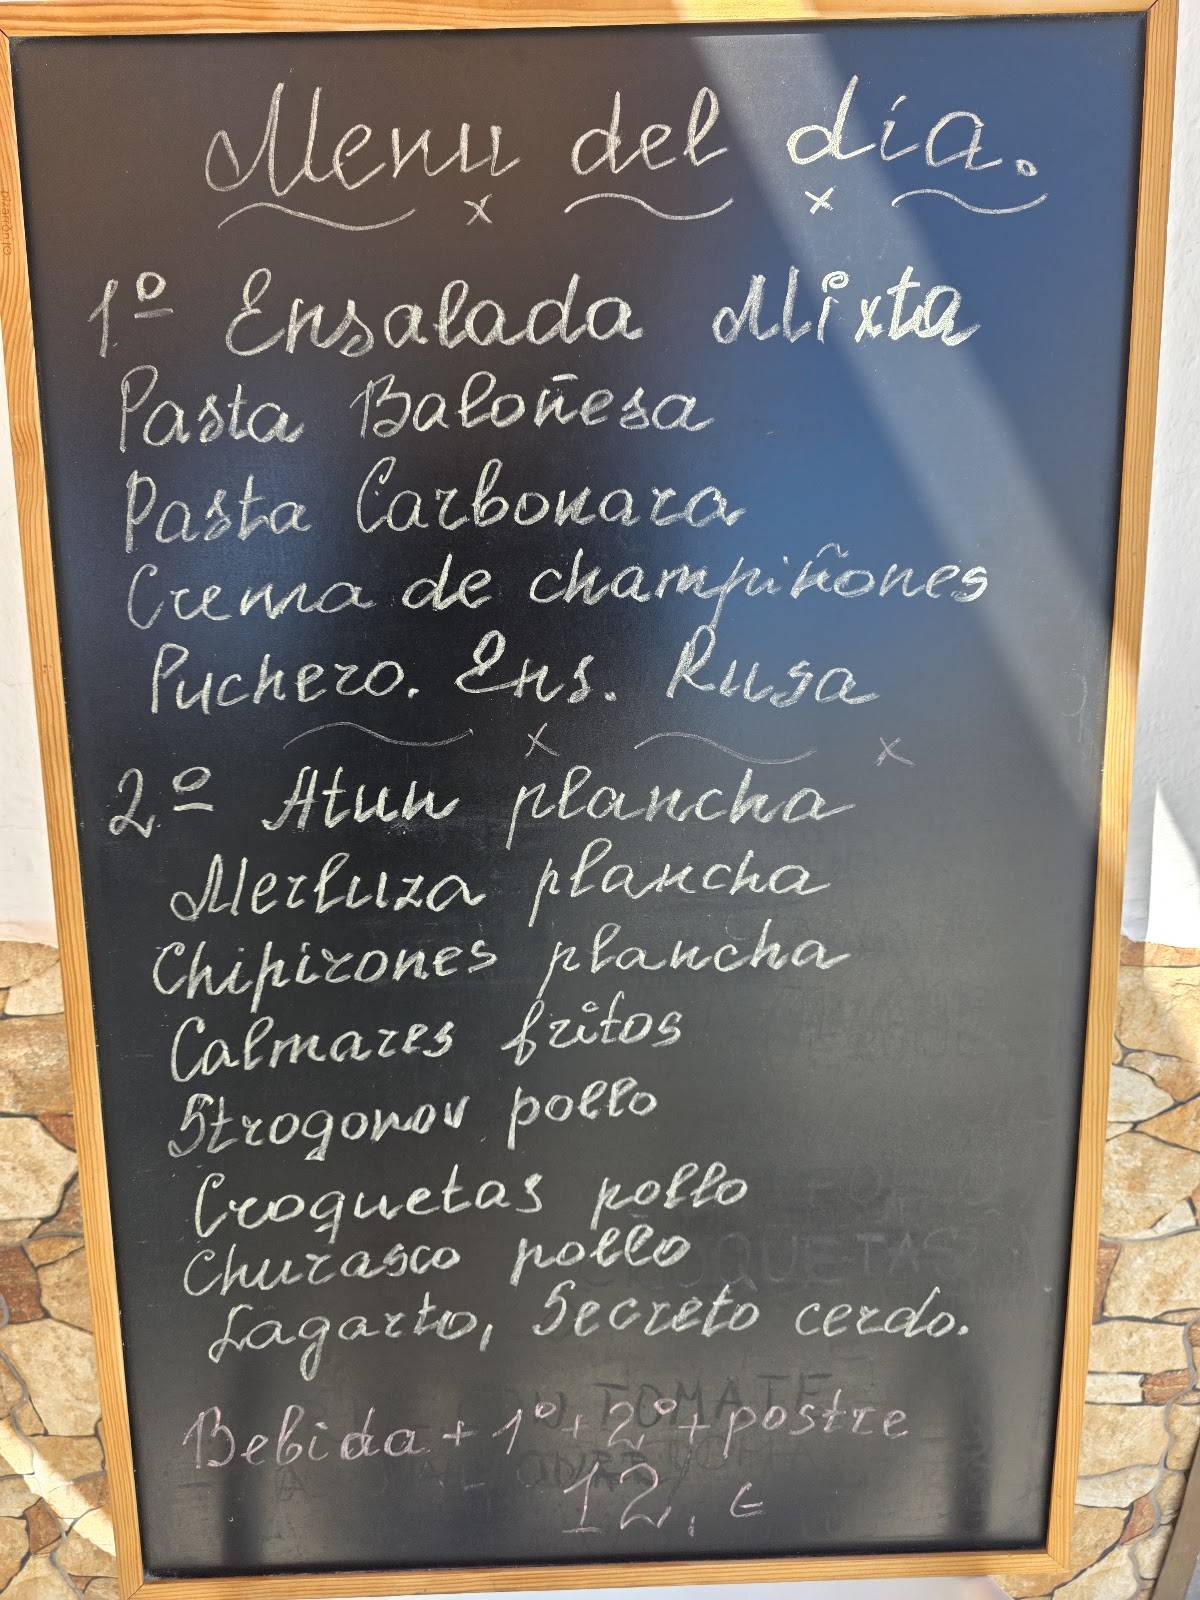 Menu del día.
1º Ensalada Mixta
Pasta Baloñesa
Pasta Carbonara
Crema de champiñones
Puchero. Ens. Rusa
2º Atun plancha
Merluza plancha
Chipirones plancha
Calmares fritos
Strogonov pollo
Croquetas pollo
Churasco pollo
Lagarto, Secreto cerdo.
Bebida + 1º + 2º + postre
12, €